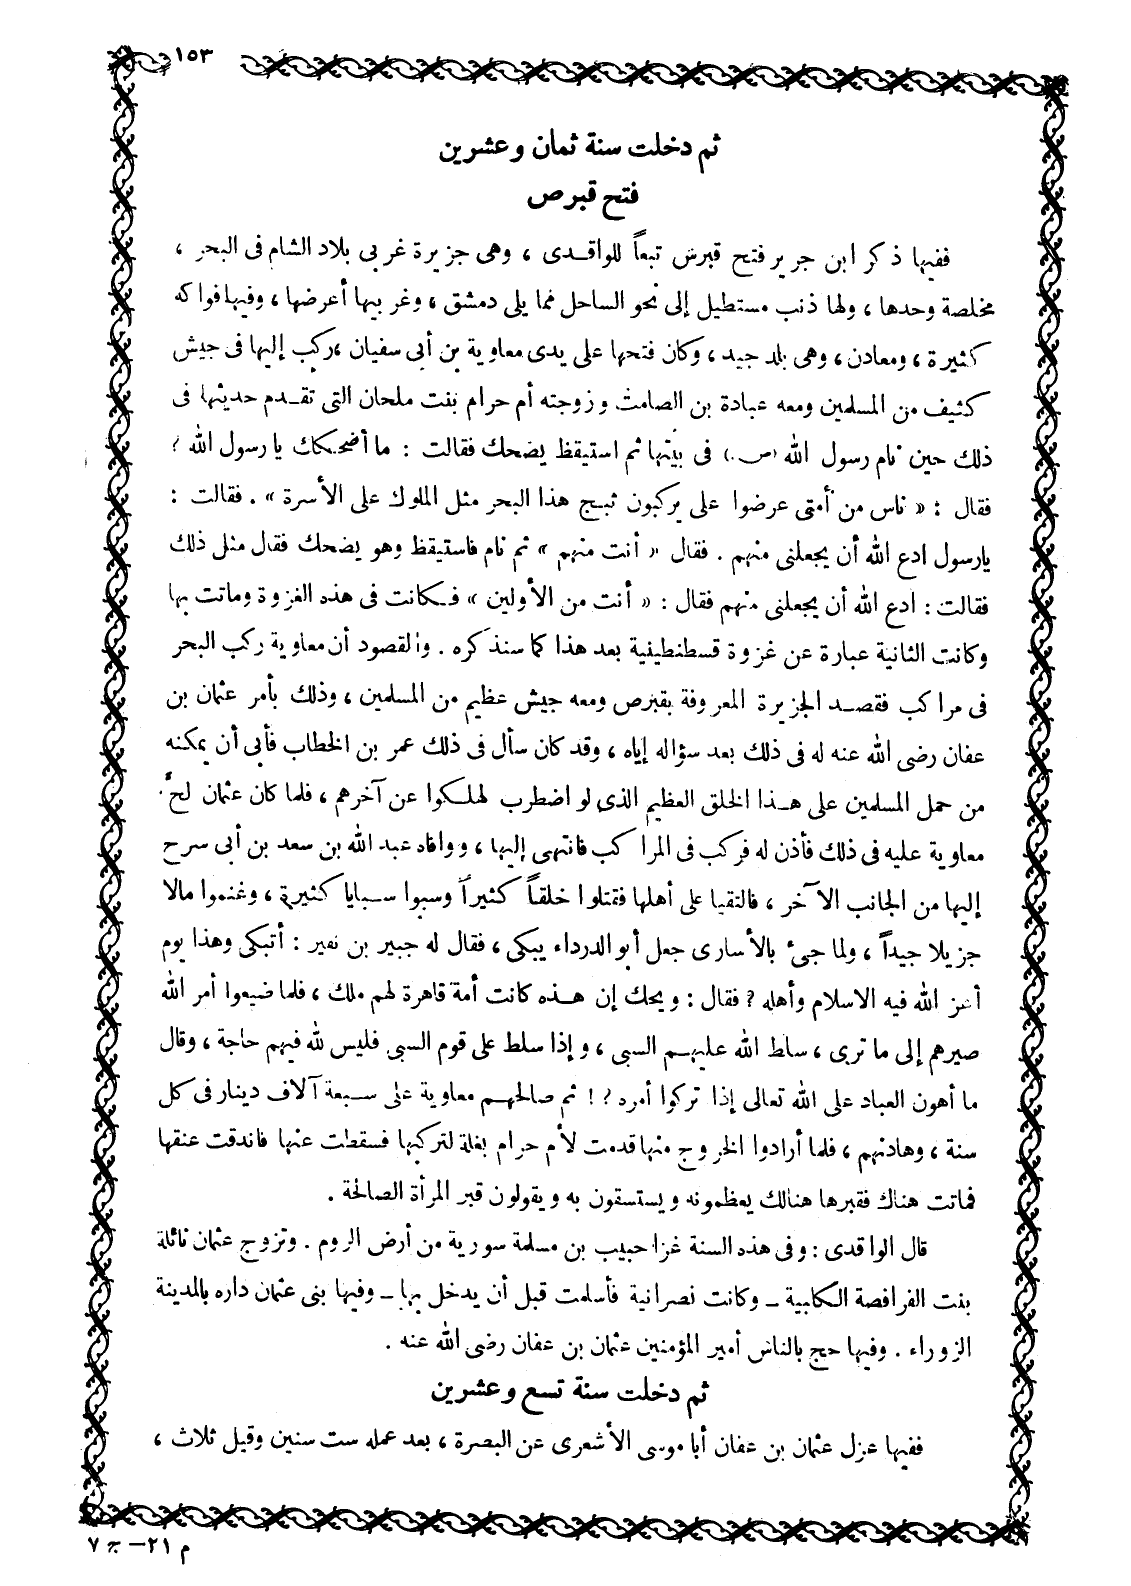 ١٥٣
ثم دخلت سنة ثمان وعشرين
فتح قبرص
ففيها ذكر ابن جرير فتح قبرس تبعاً للواقدى ، وهى جزيرة غربي بلاد الشام فى البحر ،
مخلصة وحدها ، ولها ذنب مستطيل إلى نحو الساحل مما يلى دمشق ، وغربيها أعرضها ، وفيها فواكه
كثيرة ، ومعادن ، وهى بلد جيد ، وكان فتحها على يدى معاوية بن أبى سفيان ، ركب إليها فى جيش
كثيف من المسلمين ومعه عبادة بن الصامت وزوجته أم حرام بنت ملحان التى تقدم حديثها فى
ذلك حين نام رسول الله (ص.) فى بيتها ثم استيقظ يضحك فقالت : ما أضحكك يا رسول الله ؟
فقال : « ناس من أمتى عرضوا على يركبون ثبج هذا البحر مثل الملوك على الأسرة » . فقالت :
يارسول ادع الله أن يجعلنى منهم . فقال « أنت منهم » ثم نام فاستيقظ وهو يضحك فقال مثل ذلك
فقالت : ادع الله أن يجعلنى منهم فقال : « أنت من الأولين » فكانت فى هذه الغزوة وماتت بها
وكانت الثانية عبارة عن غزوة قسطنطينية بعد هذا كما سنذكره . والمقصود أن معاوية ركب البحر
فى مراكب فقصد الجزيرة المعروفة بقبرص ومعه جيش عظيم من المسلمين ، وذلك بأمر عثمان بن
عفان رضى الله عنه له فى ذلك بعد سؤاله إياه ، وقد كان سأل فى ذلك عمر بن الخطاب فأبى أن يمكنه
من حمل المسلمين على هذا الخلق العظيم الذى لو اضطرب لهلكوا عن آخرهم ، فلما كان عثمان لحّ
معاوية عليه فى ذلك فأذن له فركب فى المراكب فانتهى إليها ، ووافاه عبد الله بن سعد بن أبى سرح
إليها من الجانب الآخر ، فالتقيا على أهلها فقتلوا خلقاً كثيراً وسبوا سبايا كثيرة ، وغنموا مالا
جزيلا جيداً ، ولما جىء بالأسارى جعل أبو الدرداء يبكى ، فقال له جبير بن نفير : أتبكى وهذا يوم
أعز الله فيه الاسلام وأهله ؟ فقال : ويحك إن هذه كانت أمة قاهرة لهم ملك ، فلما ضيعوا أمر الله
صيرهم إلى ما ترى ، سلط الله عليهم السبى ، وإذا سلط على قوم السبى فليس لله فيهم حاجة ، وقال
ما أهون العباد على الله تعالى إذا تركوا أمره ؟ ! ثم صالحهم معاوية على سبعة آلاف دينار فى كل
سنة ، وهادنهم ، فلما أرادوا الخروج منها قدمت لأم حرام بغلة لتركبها فسقطت عنها فاندقت عنقها
فماتت هناك فقبرها هنالك يعظمونه ويستسقون به ويقولون قبر المرأة الصالحة .
قال الواقدى : وفى هذه السنة غزا حبيب بن مسلمة سورية من أرض الروم . وتزوج عثمان نائلة
بنت الفرافصة الكلبية - وكانت نصرانية فأسلمت قبل أن يدخل بها - وفيها بنى عثمان داره بالمدينة
الزوراء . وفيها حج بالناس أمير المؤمنين عثمان بن عفان رضى الله عنه .
ثم دخلت سنة تسع وعشرين
ففيها عزل عثمان بن عفان أبا موسى الأشعرى عن البصرة ، بعد عمله ست سنين وقيل ثلاث ،
م ٢١ - ج ٧